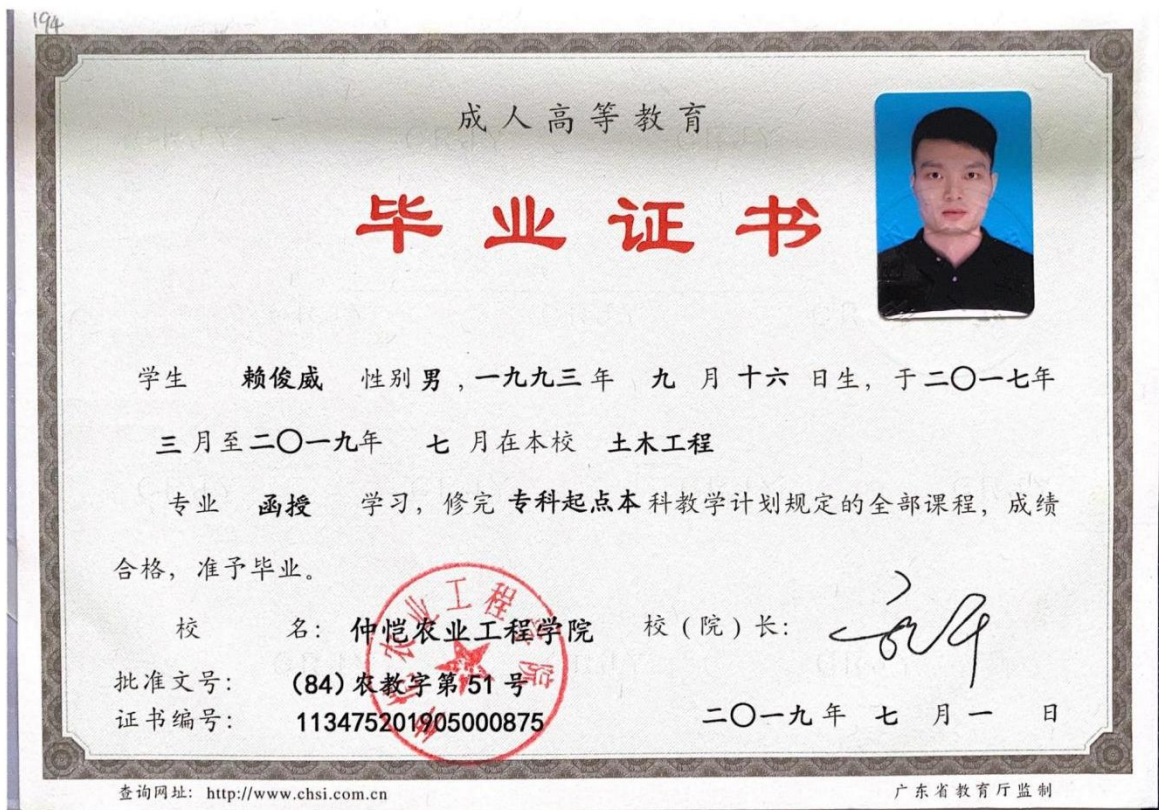 194
成人高等教育
毕业证书
学生 赖俊威 性别 男 ,一九九三 年 九 月 十六 日生, 于二〇一七年
三 月至二〇一九年 七 月在本校 土木工程
专业 函授 学习, 修完 专科起点本 科教学计划规定的全部课程, 成绩
合格, 准予毕业。
校 名: 仲恺农业工程学院 校(院)长:
批准文号: (84)农教字第51号
证书编号: 113475201905000875 二〇一九 年 七 月 一 日
仲恺农业工程学院
查询网址: http://www.chsi.com.cn 广东省教育厅监制